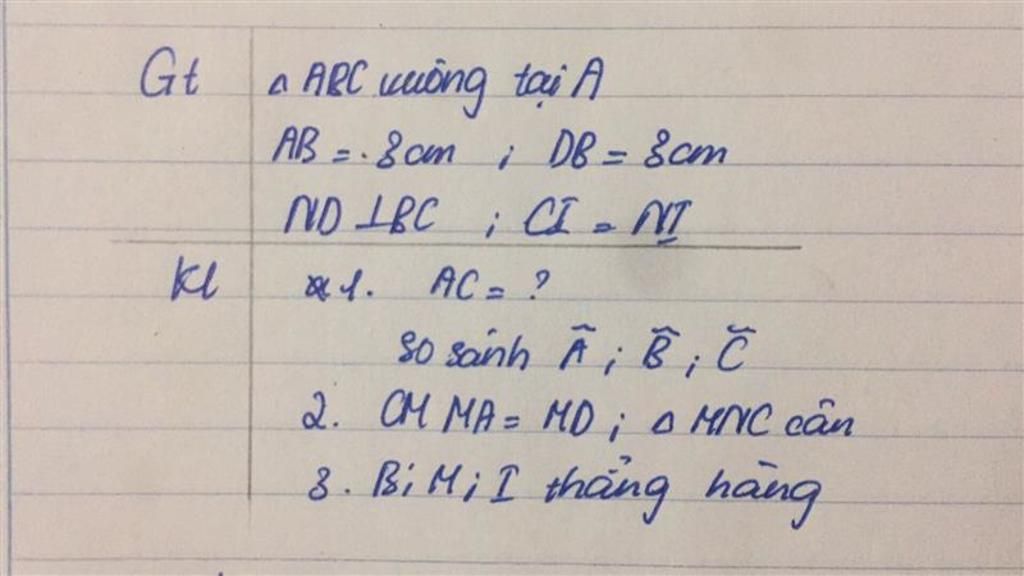 Gt ▵ ABC vuông tại A
AB = 8cm ; DB = 8cm
ND ⊥ BC ; CI = NI
Kl 1. AC = ?
so sánh Â ; B̂ ; Ĉ
2. CM MA = MD ; ▵ MNC cân
3. B; M; I thẳng hàng